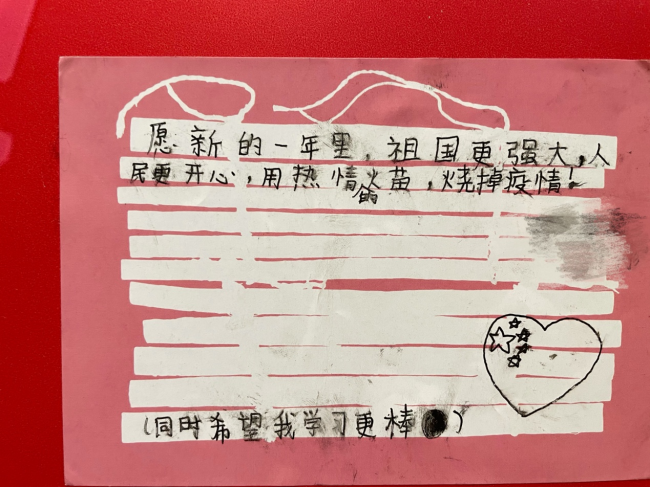 愿新的一年里，祖国更强大，人
民更开心，用热情的火苗，烧掉疫情！
（同时希望我学习更棒）